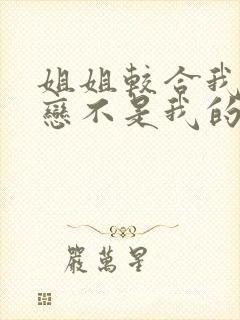 姐姐較合我
戀不是我的
嚴萬星